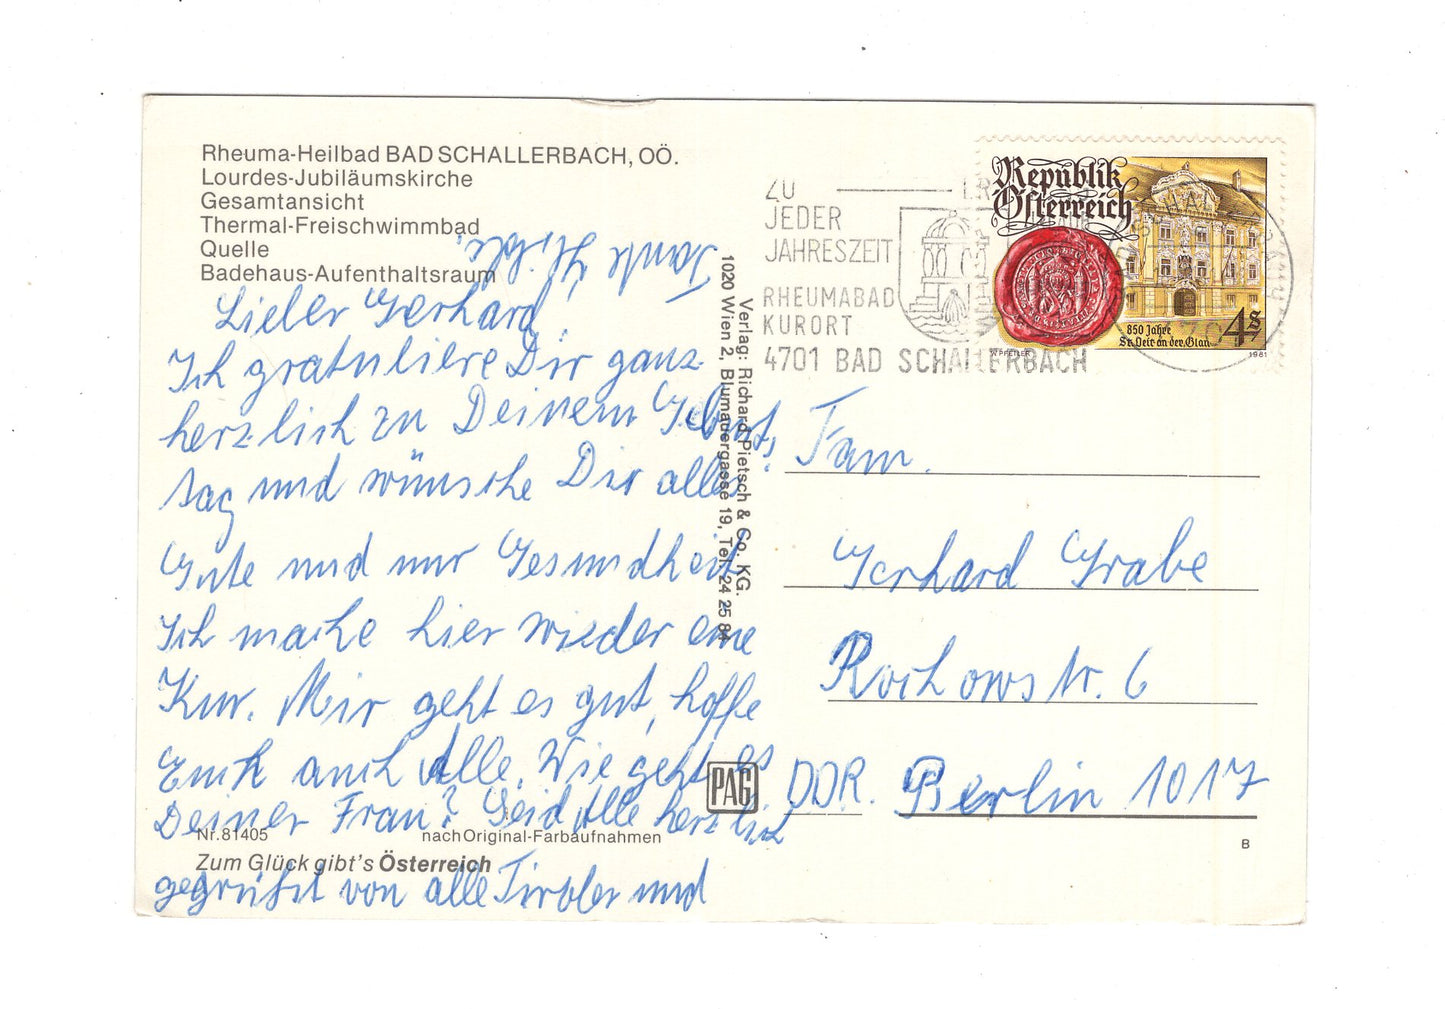 Rheuma-Heilbad BAD SCHALLERBACH, OÖ.
Lourdes-Jubiläumskirche
Gesamtansicht
Thermal-Freischwimmbad
Quelle
Badehaus-Aufenthaltsraum
Lieber Gerhard!
Ich gratuliere Dir ganz
herzlich zu Deinem Geburts-
tag und wünsche Dir alles
Gute und nur Gesundheit
Ich mache hier wieder eine
Kur. Mir geht es gut, hoffe
Euch auch Alle. Wie geht es
Deiner Frau? Seid Alle herzlich
gegrüßt von alle Tiroler und
Tante
Nr. 81405
nach Original-Farbaufnahmen
Zum Glück gibt's Österreich
Verlag: Richard Pietsch & Co. KG.
1020 Wien 2, Blumauergasse 19, Tel. 24 25 84
PAG
ZU
JEDER
JAHRESZEIT
RHEUMABAD
KURORT
4701 BAD SCHALLERBACH
Republik
Österreich
850 Jahre
St. Veit an der Glan
4 S
W. PFEILER
1981
Fam.
Gerhard Grabe
Rochowstr. 6
DDR. Berlin 1017
B